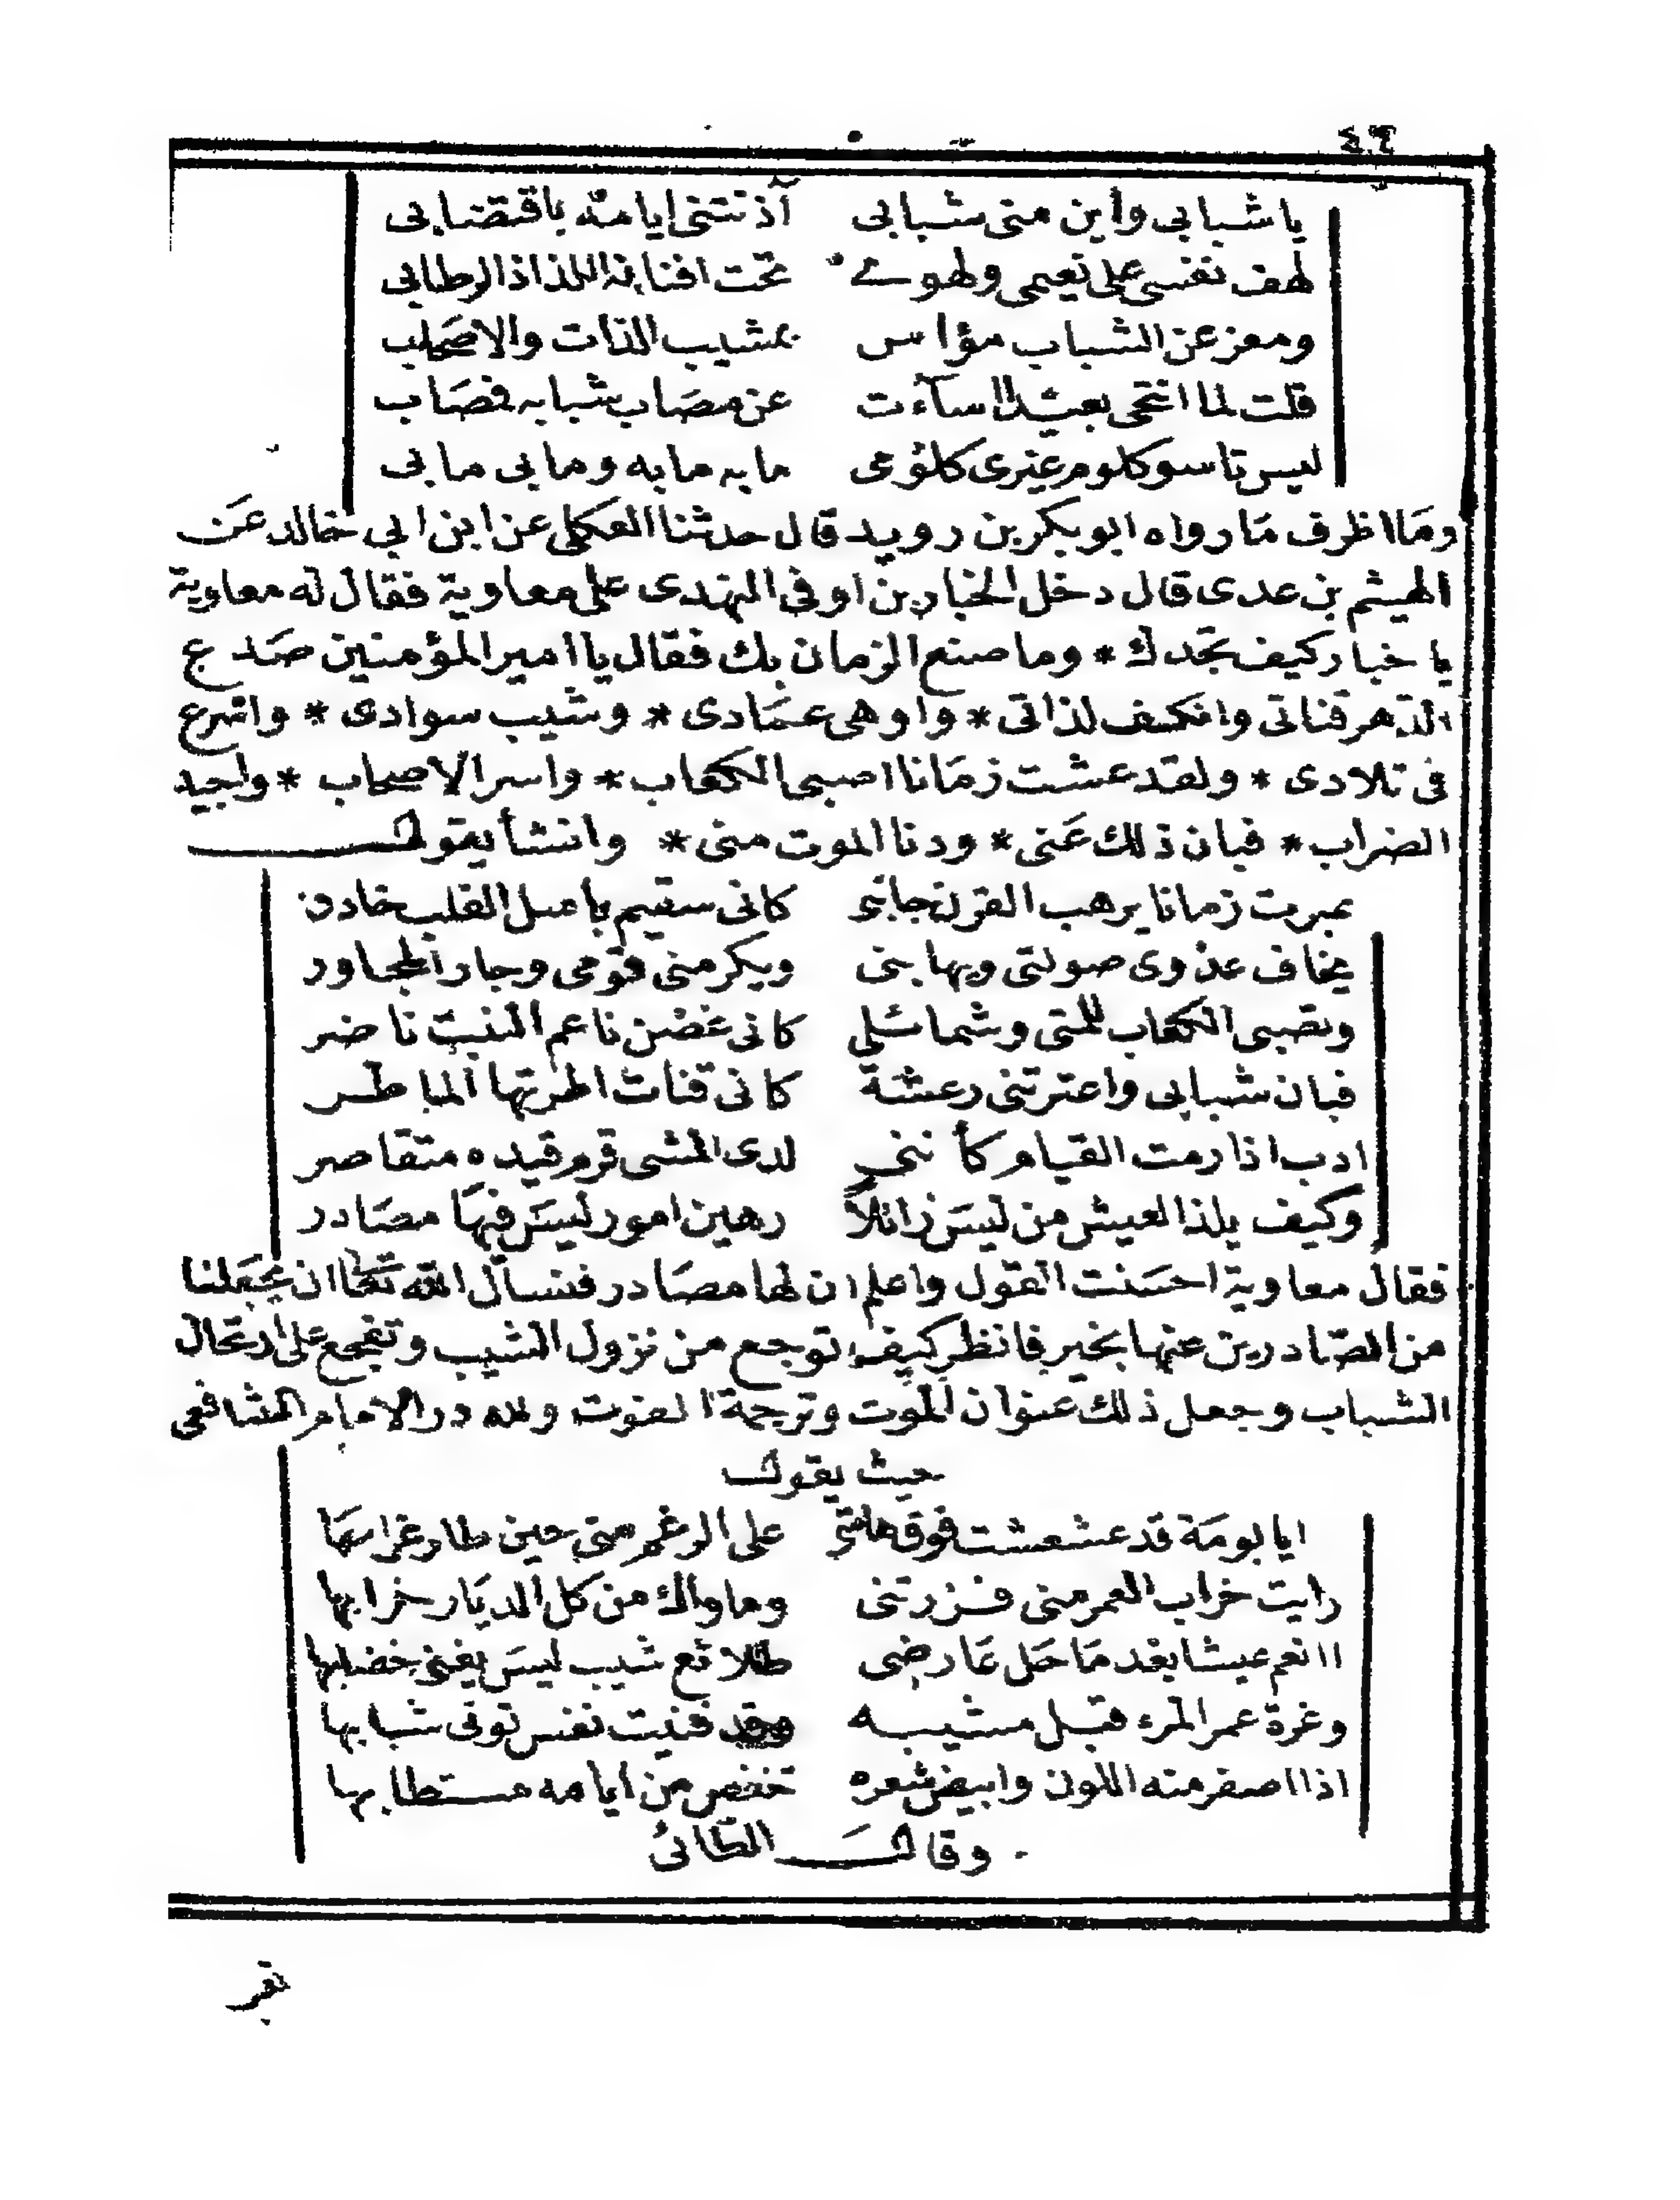 يا شبابي واين مني شبابي آذنتني ايامه باقتضابي
لهف نفسي على نعيمي ولهوي تحت افنانه اللذاذ الرطابي
ومعز عن الشباب مؤاس بمشيب اللذات والاصحاب
قلت لما انتحى بعيد اساءت عن مصاب شبابه فصاب
ليس تاسو كلوم غيرى كلومى ما به ما به وما بي ما بي
ومَا اظرف مَا رواه ابو بكر بن رويد قال حدثنا العكلى عن ابن ابي خالد عَن
الهيثم بن عدى قال دخل الخبار بن اوفى النهدى على معاوية فقال له معاوية
يا خبار كيف تجدك * وما صنع الزمان بك فقال يا امير المؤمنين صَدع
الدهر قناتى وانكسف لذاتى * واوهى عمَادى * وشيب سوادى * واشرع
فى تلادى * ولقد عشت زمَانا اصبى الكعاب * واسر الاصحاب * واجيد
الضراب * فبان ذلك عَنى * ودنا الموت منى * وانشأ يقول
عبرت زمانا يرهب القرن جانبى كانى سقيم باسل القلب خادر
يخاف عدوى صولتى ويهابنى ويكرمنى قومى وجار المجاور
وتصبى الكعاب للمتى وشمائلى كانى غصن ناعم النبت ناضر
فبان شبابى واعترتنى رعشة كانى قنات اطرتها المباطر
ادب اذا رمت القيام كأننى لدى المشى قرم قيده متقاصر
وكيف يلذ العيش من ليسَ زائلاً رهين امور ليسَ فيهَا مصَادر
فقال معاوية احسَنت القول واعلم ان لها مصَادر فنسأل الله تعالى ان يجعَلنا
من الصَادرين عنها بخير فانظر كيف توجع من نزول المشيب وتفجع على ارتحال
الشباب وجعل ذلك عنوان الموت وترجمة الفوت ولله در الامام الشافعى
حيث يقول
ايا بومَة قد عشعشت فوق هامتى على الرغم منى حين طار غرابهَا
رايت خراب العمر منى فزرتنى وماواك من كل الديَار خرابها
اانعم عيشا بعْد مَا حَل عَارضى طلائع شيب ليسَ يغنى خضابها
وغرة عمر المرء قبل مشيبه وقد فنيت نفس تولى شبابها
اذا اصفر منه اللون وابيض شعره تنغص من ايامه مستطابها
وقالَ الطَائى
تقر